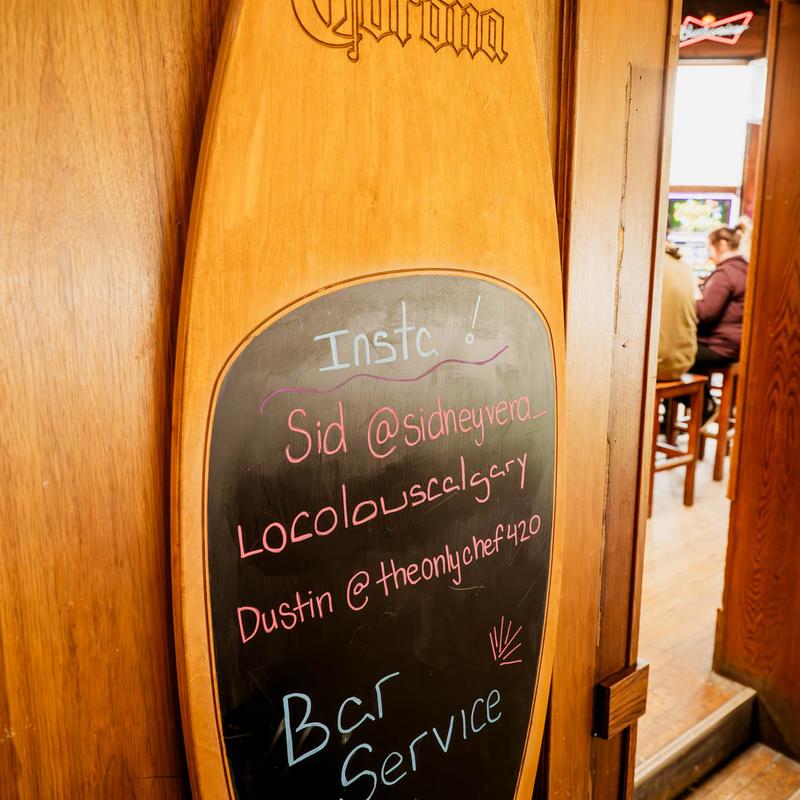 Corona
Budweiser
Insta!
Sid @sidneyvera_
Locolouscalgary
Dustin @theonlychef420
Bar
Service